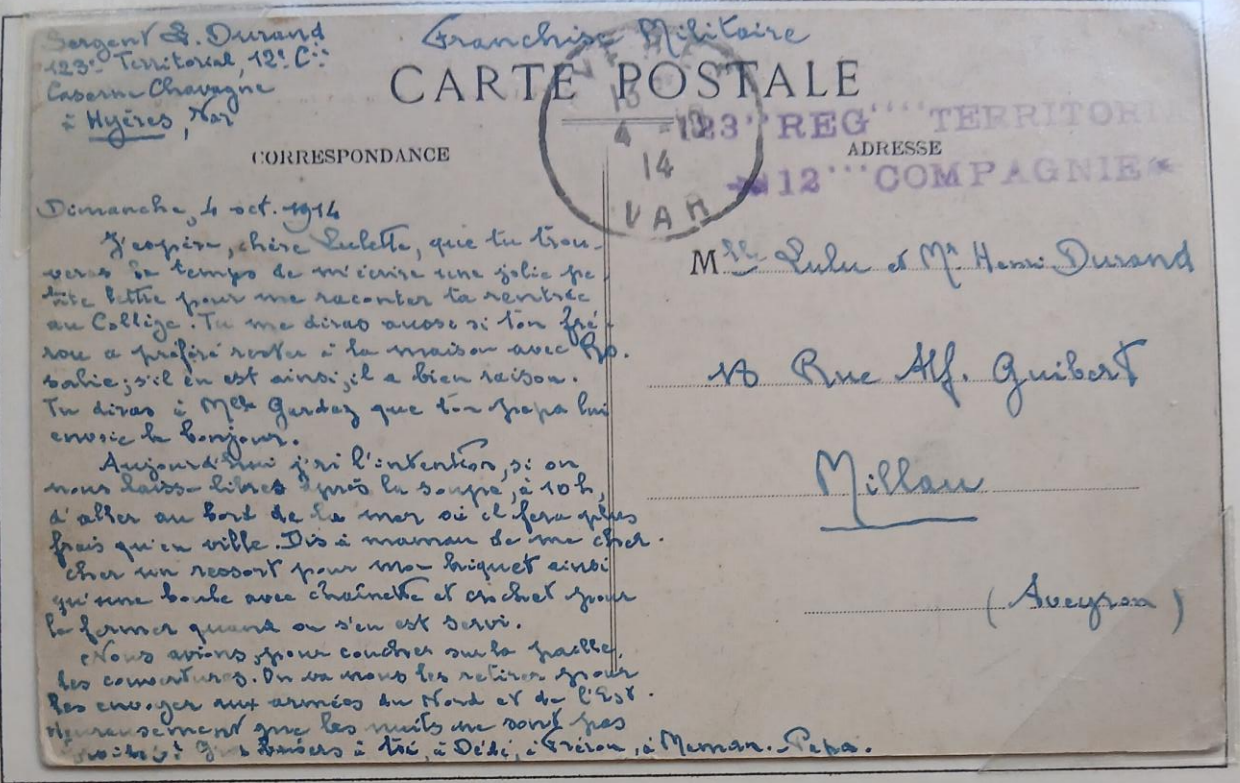 Sergent L. Durand
123e Territorial, 12e Cie
Caserne Chavagne
à Hyères, Var
Franchise Militaire
CARTE POSTALE
CORRESPONDANCE
ADRESSE
4 - 10
14
VAR
123 REG TERRITORI
12 COMPAGNIE
Dimanche, 4 oct. 1914
J'espère, chère Lulette, que tu trou-
veras le temps de m'écrire une jolie pe-
tite lettre pour me raconter ta rentrée
au Collège. Tu me diras aussi si ton fré-
rou a préféré rester à la maison avec Ro-
salie; s'il en est ainsi, il a bien raison.
Tu diras à Mlle que ton papa lui
envoie le bonjour.
Aujourd'hui j'ai l'intention, si on
nous laisse libres après la soupe, à 10h,
d'aller au bord de la mer où il fera plus
frais qu'en ville. Dis à maman de me cher-
cher un ressort pour mon briquet ainsi
qu'une boule avec chaînette et crochet pour
la fermer quand on s'en est servi.
Nous avions, pour coucher sur la paille,
des couvertures. On va nous les retirer pour
les envoyer aux armées du Nord et de l'Est.
Heureusement que les nuits ne sont pas
froides! Gros baisers à toi, à Dédé, à Frérou, à Maman. Papa.
Mlle Lulu et Mr Henri Durand
18 Rue Alf. Guibert
Millau
(Aveyron)